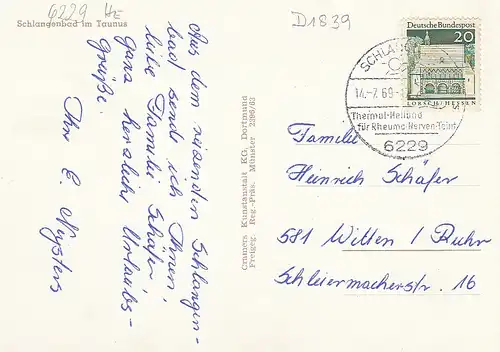 6229 HE
Schlangenbad im Taunus
D1839
Aus dem reizenden Schlangen-
bad sende ich Ihnen,
liebe Familie Schäfer,
ganz herzliche Urlaubs-
grüße.
Ihr E. Neysters
Cramers Kunstanstalt KG. Dortmund
Freigeg. Reg.-Präs. Münster 2296/63
Deutsche Bundespost
20
LORSCH/HESSEN
SCHLANG
14.-7.69-
Thermal-Heilbad
für Rheuma-Nerven-Teint
6229
Familie
Heinrich Schäfer
581 Witten / Ruhr
Schleiermacherstr. 16